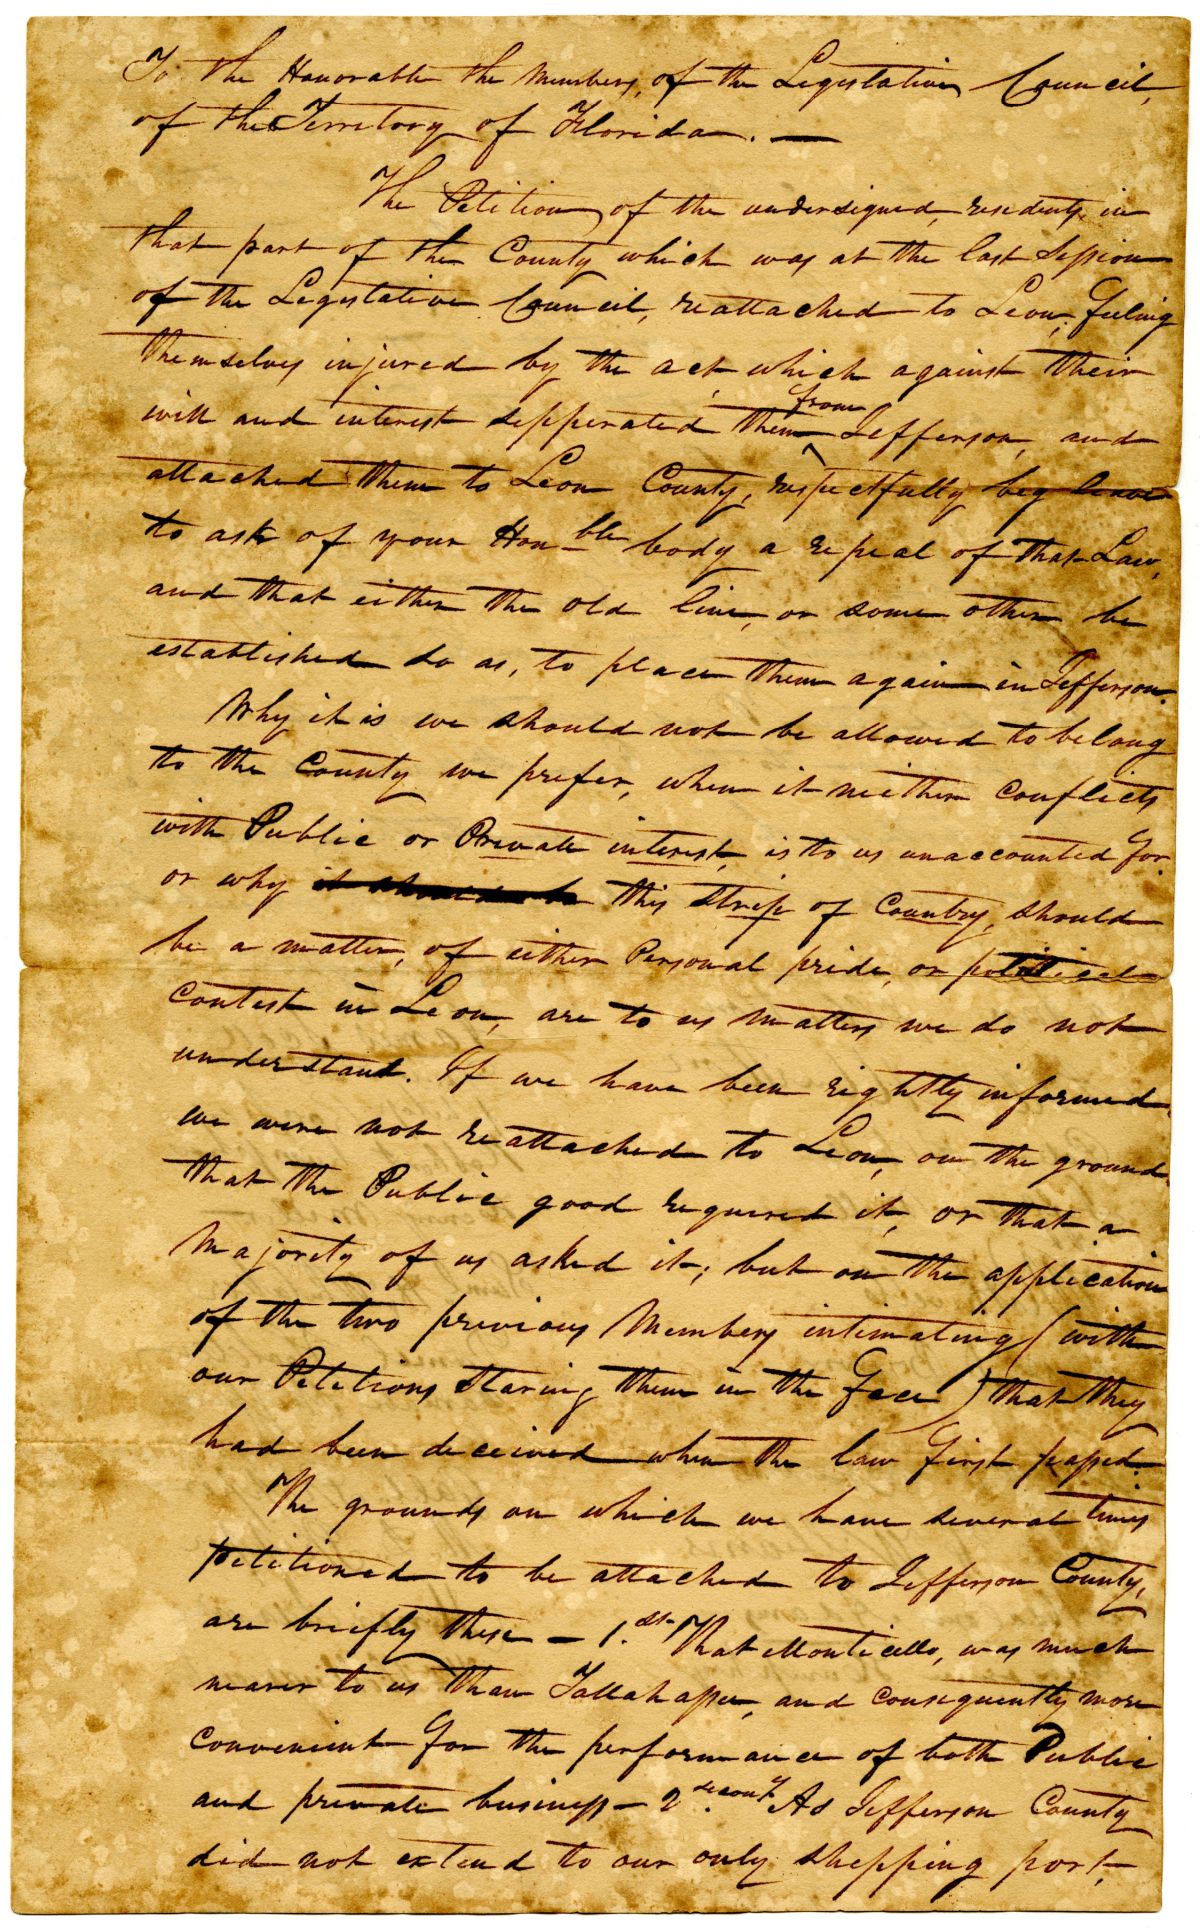 To the Honorable the Members, of the Legislative Council,
of the Territory of Florida. —
The Petition of the undersigned, residents in
that part of the County which was at the last Session
of the Legislative Council, reattached to Leon, feeling
themselves injured by the act, which against their
will and interest sepperated them from Jefferson, and
attached them to Leon County, respectfully beg leave
to ask of your Hon-ble body a repeal of that Law,
and that either the old line, or some other be
established so as, to place them again in Jefferson.
Why it is we should not be allowed to belong
to the County we prefer, when it neither conflicts
with Public or Private interest, is to us unaccounted for
or why it should be this strip of Country, should
be a matter, of either Personal pride, or political
contest in Leon, are to us matters we do not
understand. If we have been rightly informed,
we were not reattached to Leon, on the ground,
that the Public good required it, or that a
Majority of us asked it; but on the application
of the two previous Members intimating (with
our Petitions staring them in the face) that they
had been deceived when the law first passed.
The grounds on which we have several times
petitioned to be attached to Jefferson County,
are briefly these — 1.st That Monticello, was much
nearer to us than Tallahassee, and consequently more
convenient for the performance of both Public
and private business — 2.second As Jefferson County
did not extend to our only shipping port,